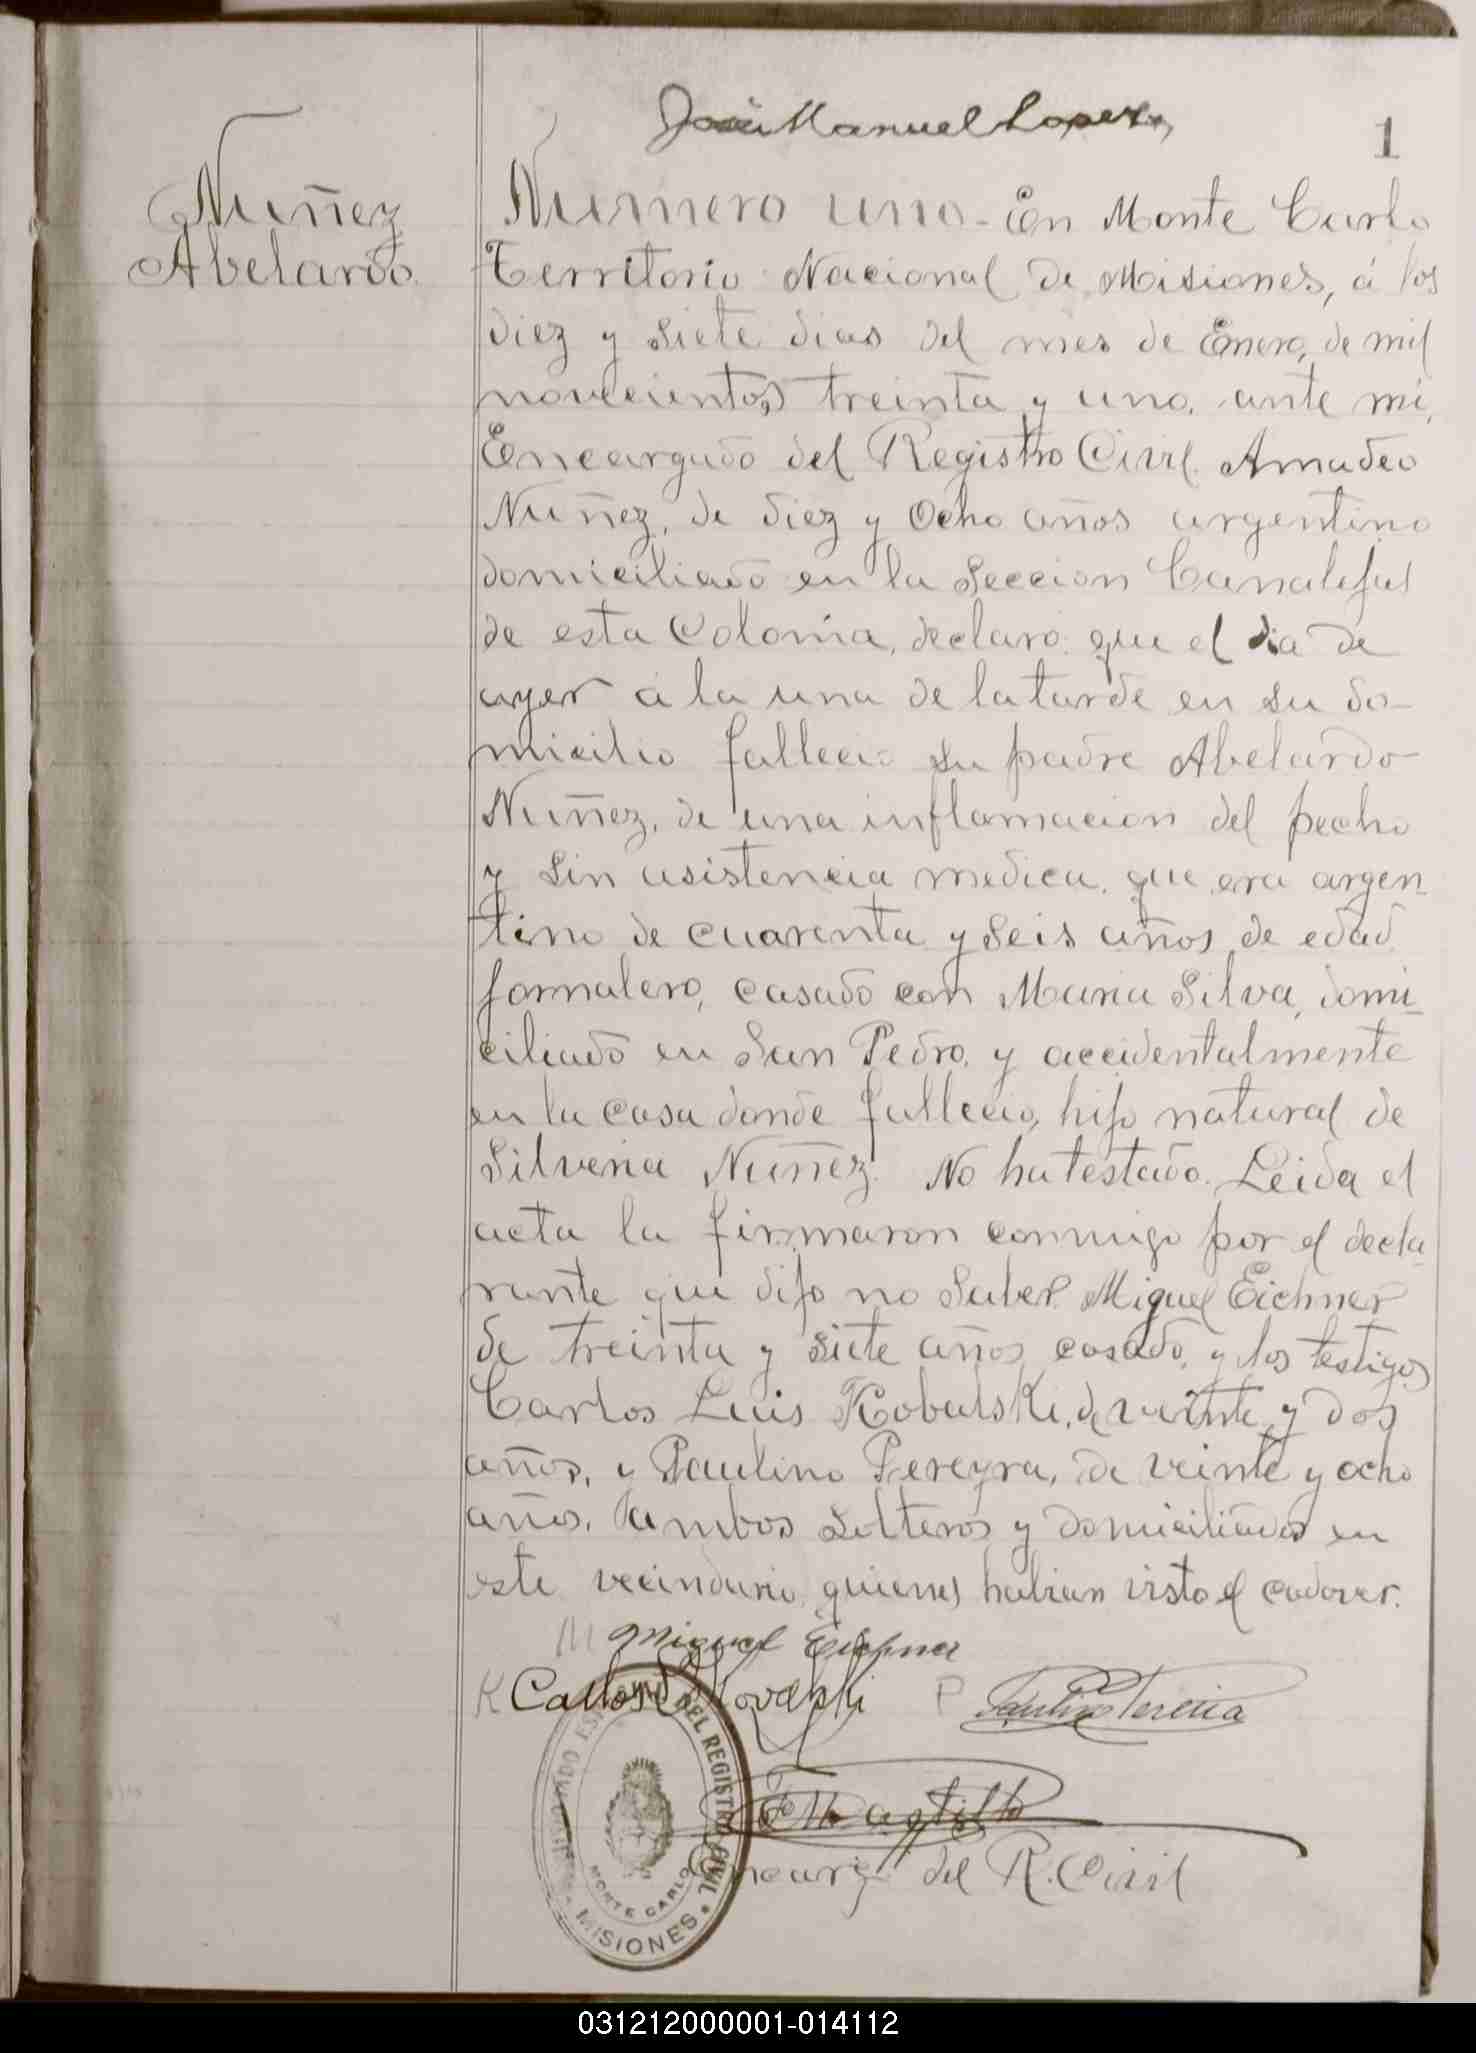 José Manuel Lopez
1
Nuñez
Abelardo
Numero uno - En Monte Carlo
Territorio Nacional de Misiones, á los
diez y siete dias del mes de Enero, de mil
novecientos treinta y uno, ante mi,
Encargado del Registro Civil Amadeo
Nuñez, de diez y Ocho años argentino
domiciliado en la Seccion
de esta Colonia, declaro: que el dia de
ayer á la una de la tarde en su do-
micilio fallecio su padre Abelardo
Nuñez, de una inflamacion del pecho
y sin asistencia medica, que era argen-
tino de cuarenta y seis años de edad
jornalero, casado con Maria Silva, domi-
ciliado en San Pedro, y accidentalmente
en la casa donde fallecio, hijo natural de
Silveria Nuñez. No ha testado. Leida el
acta la firmaron conmigo por el decla-
rante que dijo no saber Miguel Eichner
de treinta y siete años casado, y los testigos
Carlos Luis Kobalski, de veinte y dos
años, y Paulino Pereyra, de veinte y ocho
años, ambos solteros y domiciliados en
este vecindario, quienes habian visto el cadaver.
M Miguel Eichner
K Carlos L Kovalski P Paulino Pereira
Castillo
Encarg del R. Civil
DEL REGISTRO CIVIL
MONTE CARLO
MISIONES
031212000001-014112